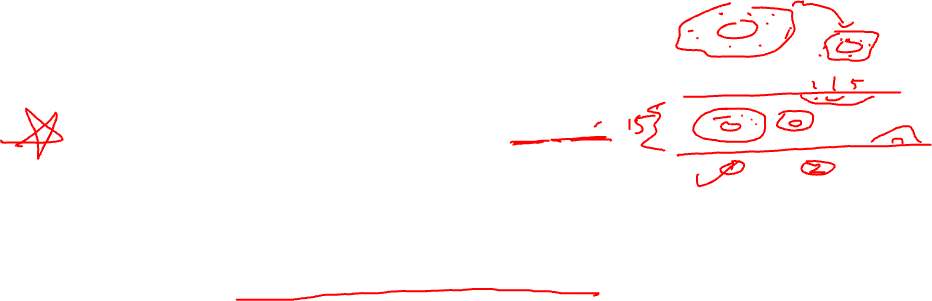 115
15
1 2